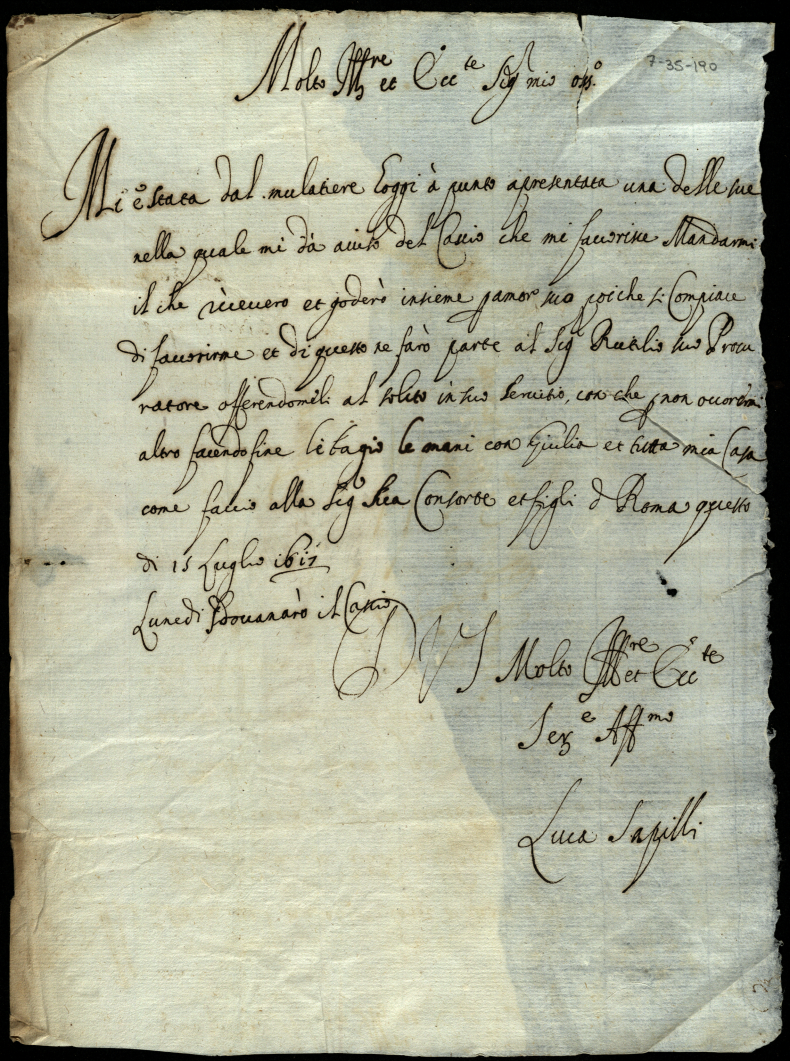 7-35-190
Molto Ill.re et Ecc.te Sig mio oss.o
Mi è stata dal mulatiere hoggi à punto apresentata una delle sue
nella quale mi dà aviso del Cascio che mi favorisce Mandarmi
il che ricevero et goderò insieme p amor suo poiche si Compiace
di favorirme et di questo ne farò parte al Sig Rutilio suo Procu
ratore offerendomeli al solito in suo servitio, con che p non ocorermi
altro facendo fine li bagio le mani con Giulia et tutta mia Casa
come faccio alla Sig Sua Consorte et figli d Roma questo
di 15 Luglio 1617
Lunedi sdovanarò il Cascio
D V S Molto Ill.re et Ecc.te
Ser.e Aff.mo
Luca Sapilli